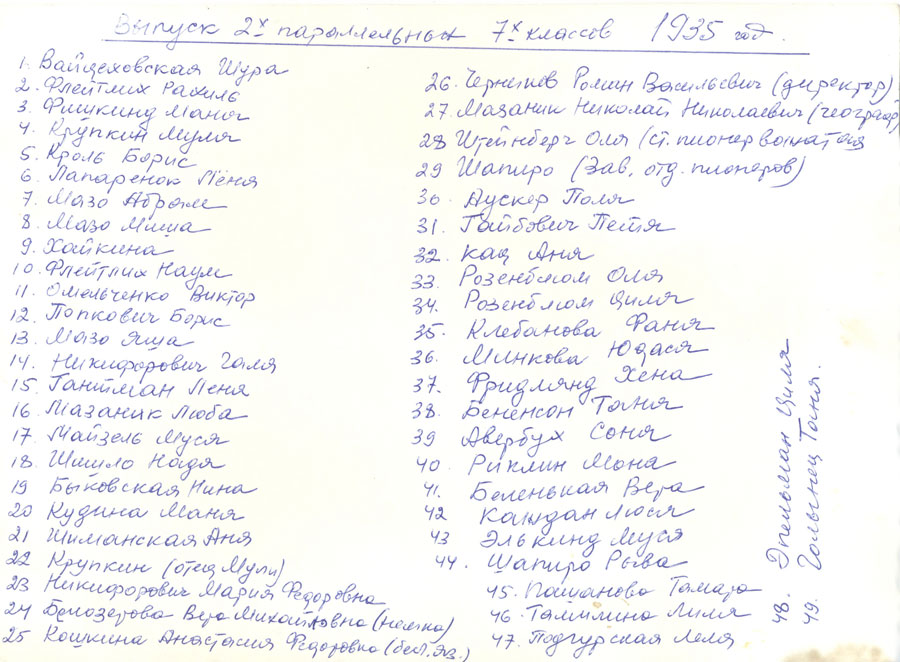 Выпуск 2х параллельных 7х классов 1935 год.
1. Войцеховская Шура
2. Флейтлих Рахиль
3. Фишкинд Маня
4. Крупкин Муля
5. Кроль Борис
6. Лапаренок Лёня
7. Мазо Абрам
8. Мазо Миша
9. Хайкина
10. Флейтлих Наум
11. Омельченко Виктор
12. Попкович Борис
13. Мазо Яша
14. Никифорович Галя
15. Гантман Леня
16. Мазаник Люба
17. Майзель Муся
18. Шишло Надя
19 Быковская Нина
20 Кудина Маня
21 Шиманская Аня
22 Крупкин (отец Мули)
23 Никифорович Мария Федоровна
24 Белозерова Вера Михайловна (немка)
25 Кошкина Анастасия Федоровна (бел. яз.)
26. Черепков Роман Васильевич (директор)
27. Мазаник Николай Николаевич (географ)
28 Штейнберг Оля (Ст. пионервожатая
29 Шапиро (Зав. отд. пионеров)
30 Аускер Поля
31. Гайбович Петя
32. Кац Аня
33. Розенблюм Оля
34. Розенблюм Циля
35. Клебанова Фаня
36. Минкова Юдася
37. Фридлянд Хена
38. Бененсон Таня
39 Авербух Соня
40. Риклин Мона
41. Беленькая Вера
42 Кашдан Люся
43 Элькинд Муся
44. Шапиро Рыва
45. Пашанова Тамара
46. Таммлина Лиля
47. Подгурская Леля
48. Эпельман Циля
49. Голынец Таня.